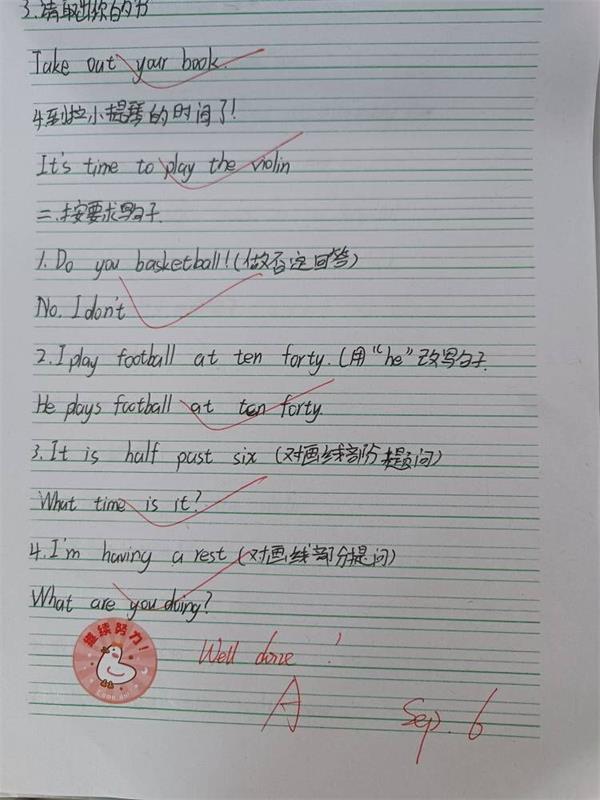 3.请取出你的书
Take out your book.
4.到拉小提琴的时间了!
It's time to play the violin
二.按要求写句子.
1. Do you basketball! (做否定回答)
No. I don't
2. I play football at ten forty. (用"he"改写句子.
He plays football at ten forty.
3. It is half past six (对画线部分提问)
What time is it?
4. I'm having a rest (对画线部分提问)
What are you doing?
继续努力!
Well done!
A
Sep. 6